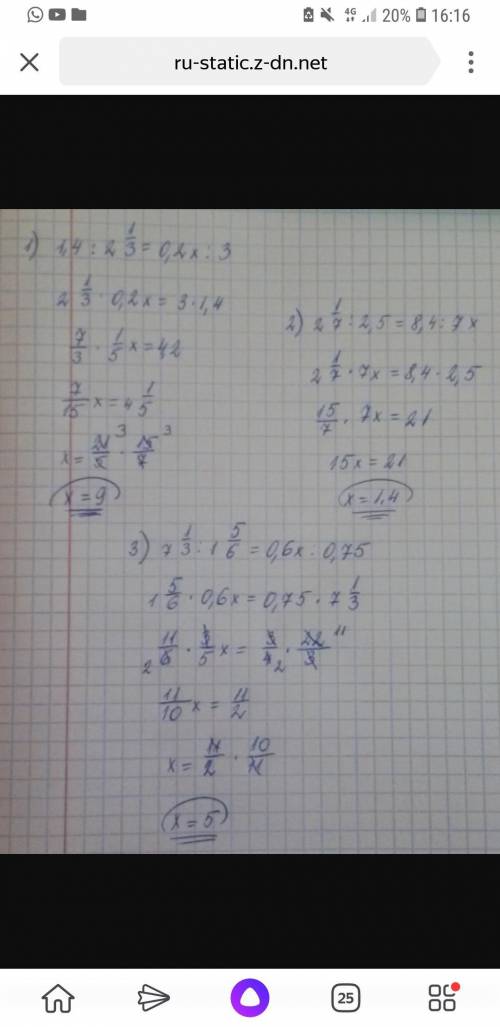 4G 20% 16:16
ru-static.z-dn.net
1) 1,4 : 2 1/3 = 0,2x : 3
2 1/3 · 0,2x = 3 · 1,4
7/3 · 1/5 x = 4,2
7/15 x = 4 1/5
x = 21/5 3 · 15/7 3
x = 9
2) 2 1/7 : 2,5 = 8,4 : 7x
2 1/7 · 7x = 8,4 · 2,5
15/7 · 7x = 21
15x = 21
x = 1,4
3) 7 1/3 : 1 5/6 = 0,6x : 0,75
1 5/6 · 0,6x = 0,75 · 7 1/3
2 11/6 · 3/5 x = 3/4 2 · 22/3 11
11/10 x = 11/2
x = 11/2 · 10/11
x = 5
25